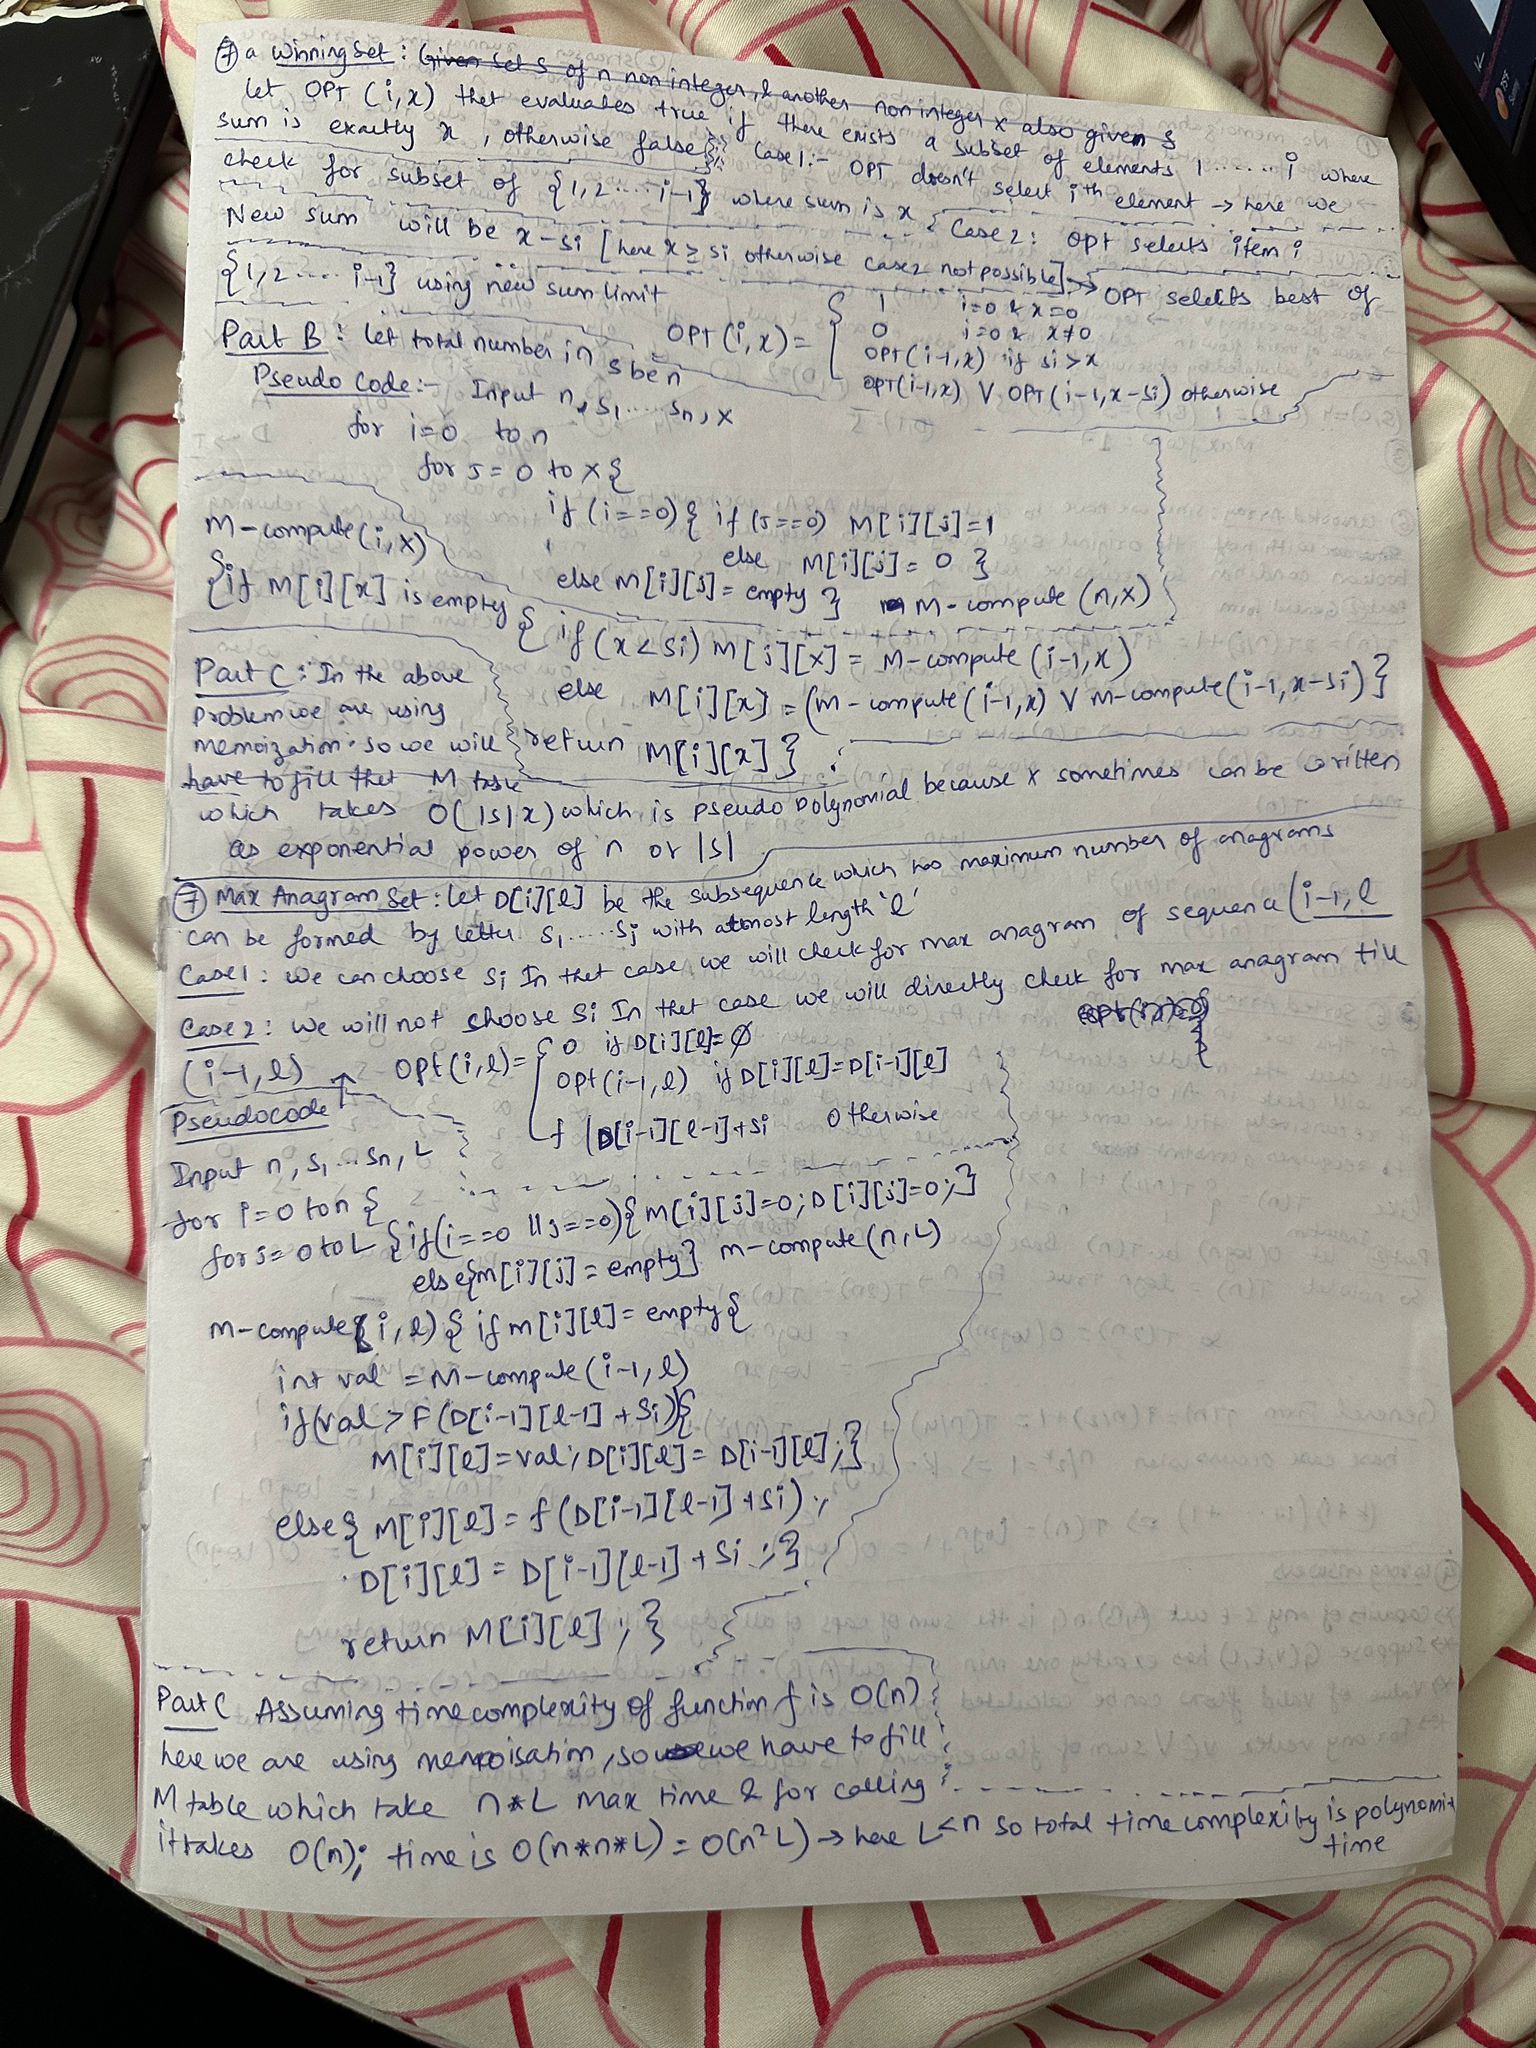 ⑦ a Winning Set : Given Set S of n non integer, & another non integer x also given S
Let OPT (i,x) that evaluates true if there exists a subset of elements 1 ...... i where
sum is exactly x , otherwise false Case 1:- OPT doesn't select ith element → here we
check for subset of {1,2 .... i-1} where sum is x Case 2: OPT selects item i
New sum will be x-si [here x ≥ si otherwise case 2 not possible] → OPT selects best of
{1,2 .... i-1} using new sum limit
OPT (i,x) = { 1 i=0 & x=0
0 i=0 & x≠0
OPT(i-1,x) if si>x
OPT(i-1,x) V OPT(i-1,x-Si) otherwise
Part B : Let total number in S be n
Pseudo Code:- Input n, S1.....Sn, X
for i=0 to n
for J = 0 to X {
if (i==0) { if (J==0) M[i][j]=1
else M[i][j]= 0 }
else M[i][j]= empty } M-compute (n,X)
M-compute (i,X)
{if M[i][x] is empty { if (x<Si) M[j][x] = M-compute (i-1,x)
else M[i][x] = (M-compute (i-1,x) V M-compute(i-1,x-si) }
return M[i][x] }
Part C : In the above
Problem we are using
memoization. so we will
have to fill that M table
which takes O(|S|x) which is pseudo polynomial because x sometimes can be written
as exponential power of n or |S|
⑦ Max Anagram Set : Let D[i][l] be the subsequence which has maximum number of anagrams
can be formed by letter S1.....Sj with atmost length 'l'
Case1 : we can choose Si In that case we will check for max anagram of sequence (i-1,l
Case2 : we will not choose Si In that case we will directly check for max anagram till
(i-1,l)
Opt(i,l)= { 0 if D[i][l]=Ø
Opt(i-1,l) if D[i][l]=D[i-1][l]
f (D[i-1][l-1]+Si otherwise
Pseudocode
Input n, S1...Sn, L
for i=0 to n {
for J= 0 to L {if(i==0 ||J==0){M[i][j]=0; D[i][j]=0;}
else{m[i][j] = empty} m-compute(n,L)
m-compute(i,l) { if m[i][l]= empty {
int val = M-compute (i-1,l)
if(val > F(D[i-1][l-1] + Si){
M[i][l]=val; D[i][l]= D[i-1][l];}
else { M[i][l] = f (D[i-1][l-1] + Si) ;
D[i][l] = D[i-1][l-1] + Si ;}
return M[i][l] ; }
Part C Assuming time complexity of function f is O(n)
here we are using memoisation, so we have to fill
M table which take n*L max time & for calling
it takes O(n); time is O(n*n*L) = O(n²L) → here L<n so total time complexity is polynomi
time